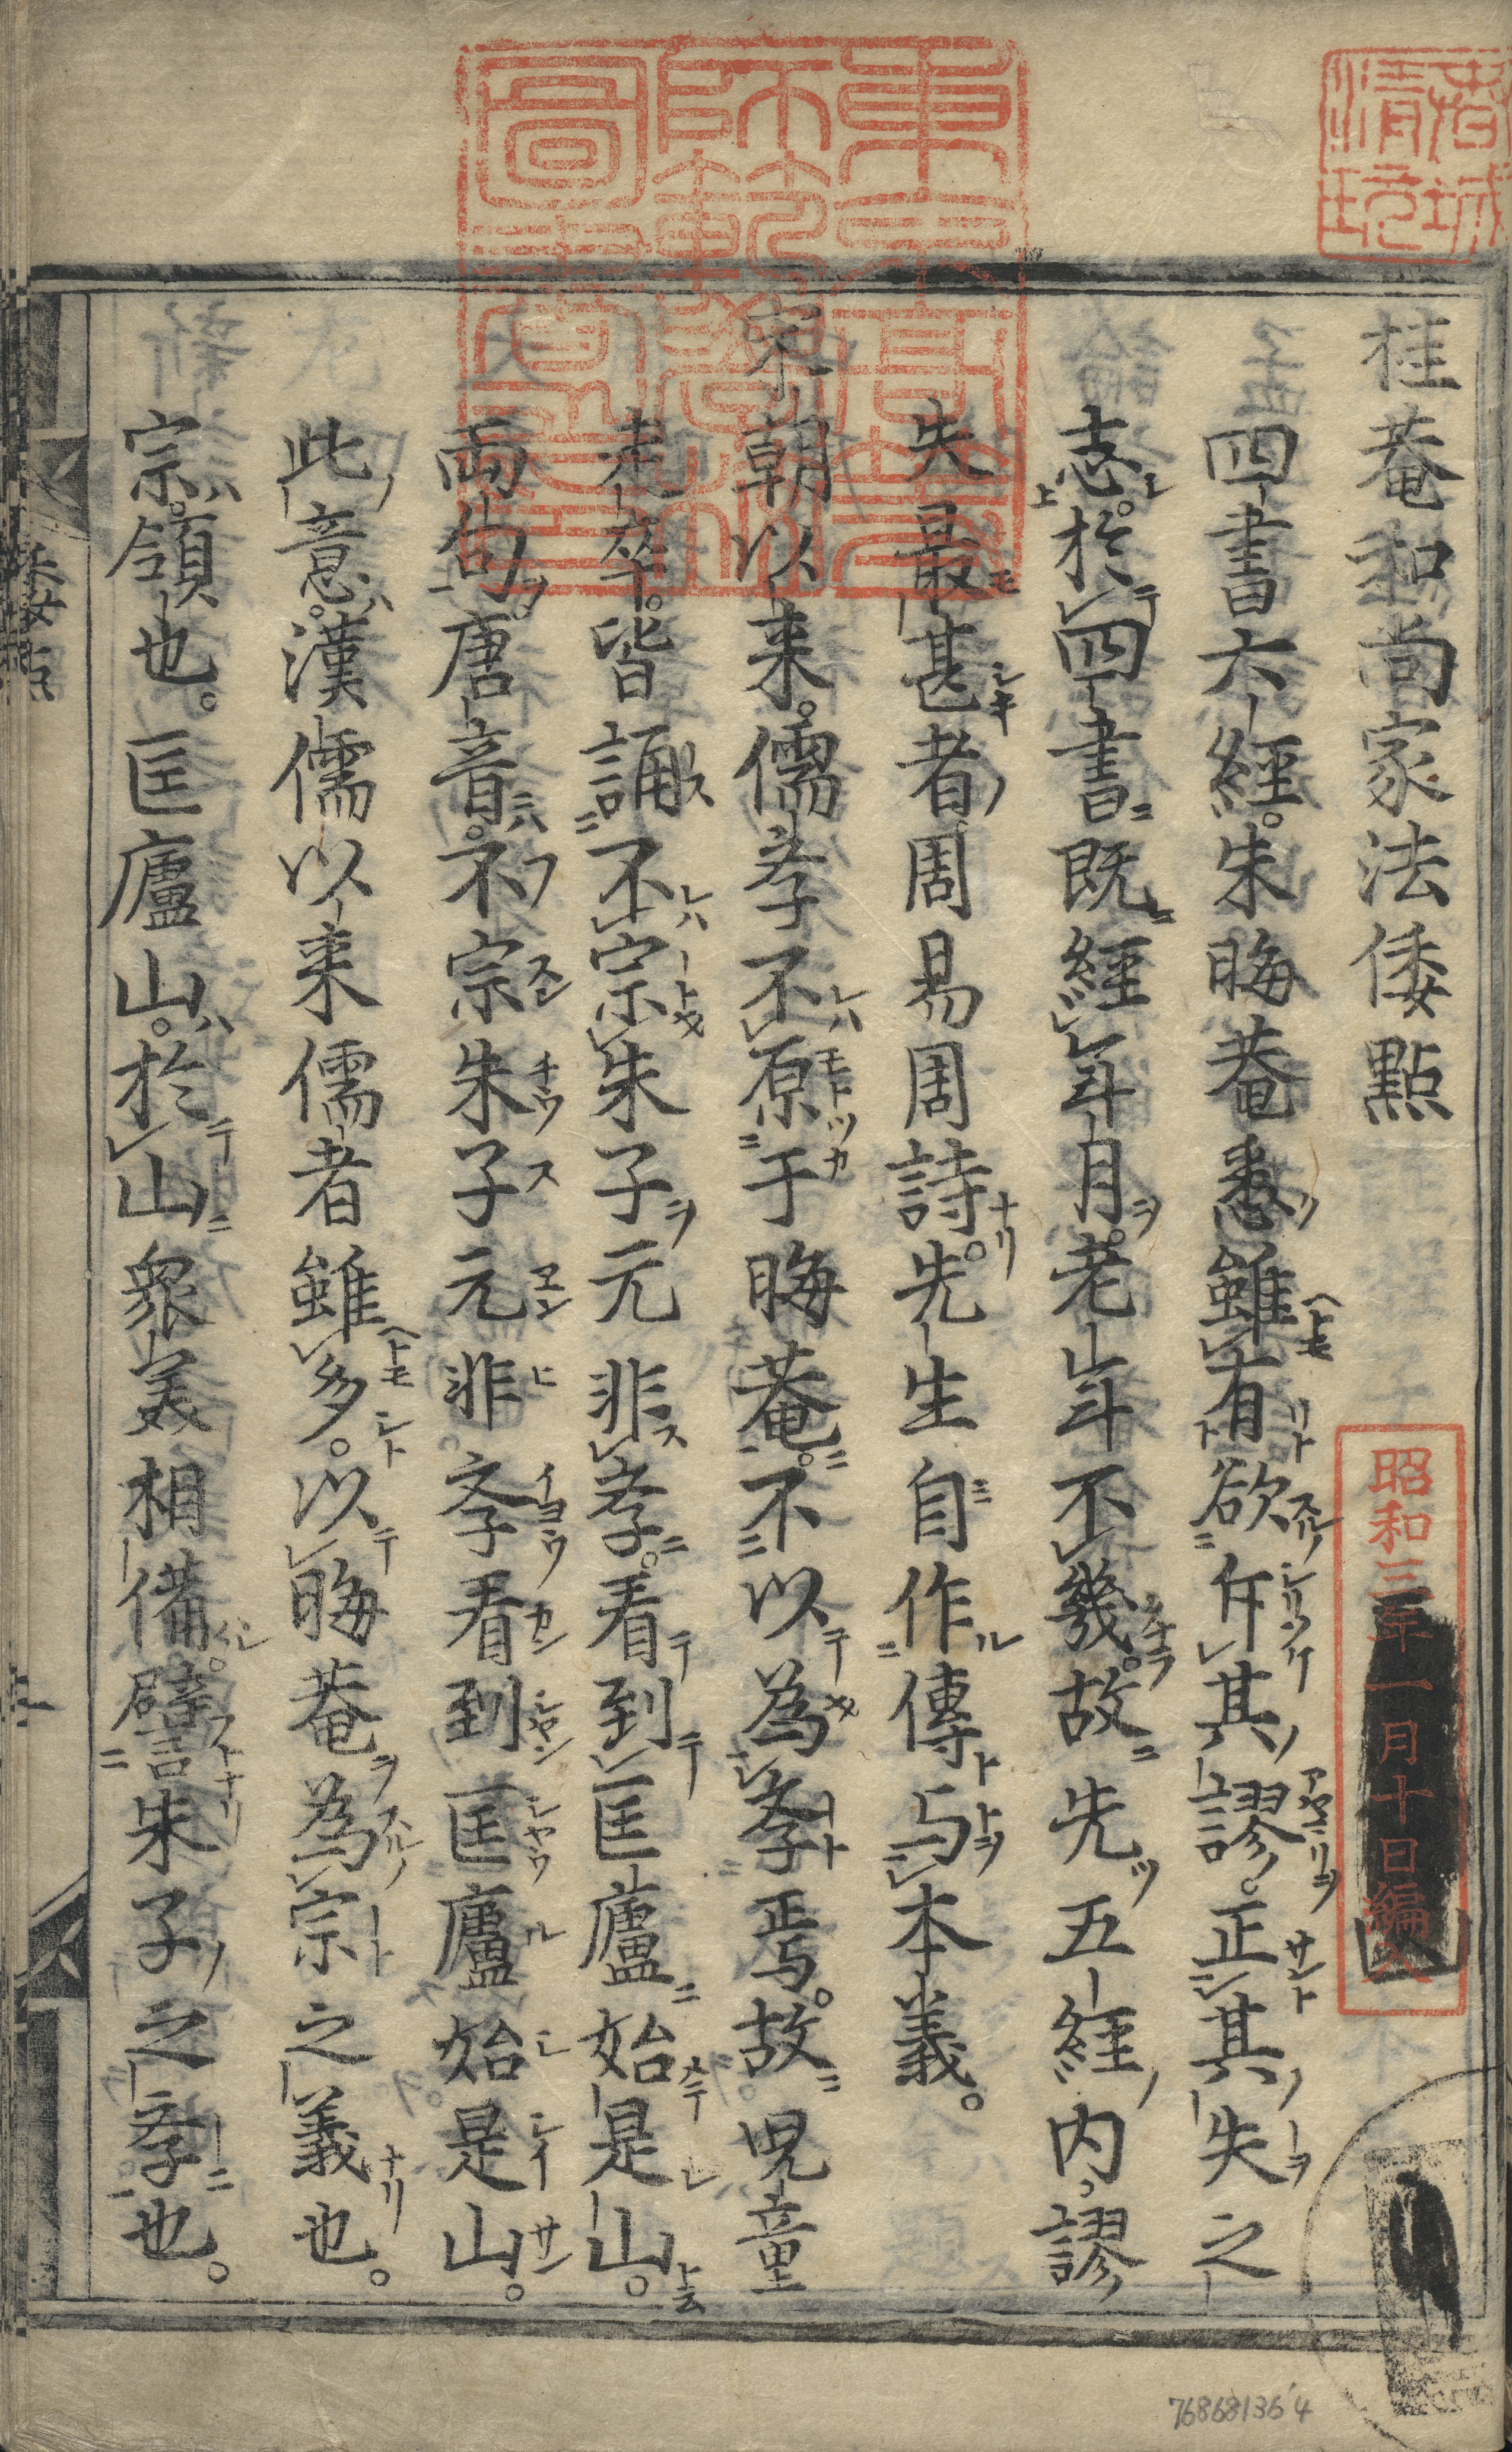 桂菴和尚家法倭點
四書六經。朱晦菴悉雖有欲斥其謬。正其失之
志。於四書既經年月。老年不幾。故先五經内謬
失最甚者周易周詩。先生自作傳与本義。
宋朝以来。儒斈不原于晦菴。不以為斈焉。故児童
走卒。皆誦不宗朱子元非斈。看到匡廬始是山。
両句。唐音。不宗朱子元非斈看到匡廬始是山。
此意。漢儒以来儒者雖多。以晦菴為宗之義也。
宗領也。匡廬山。於山衆美相備。譬朱子之斈也。
昭和三年一月十日編入
倭点
76868136'4